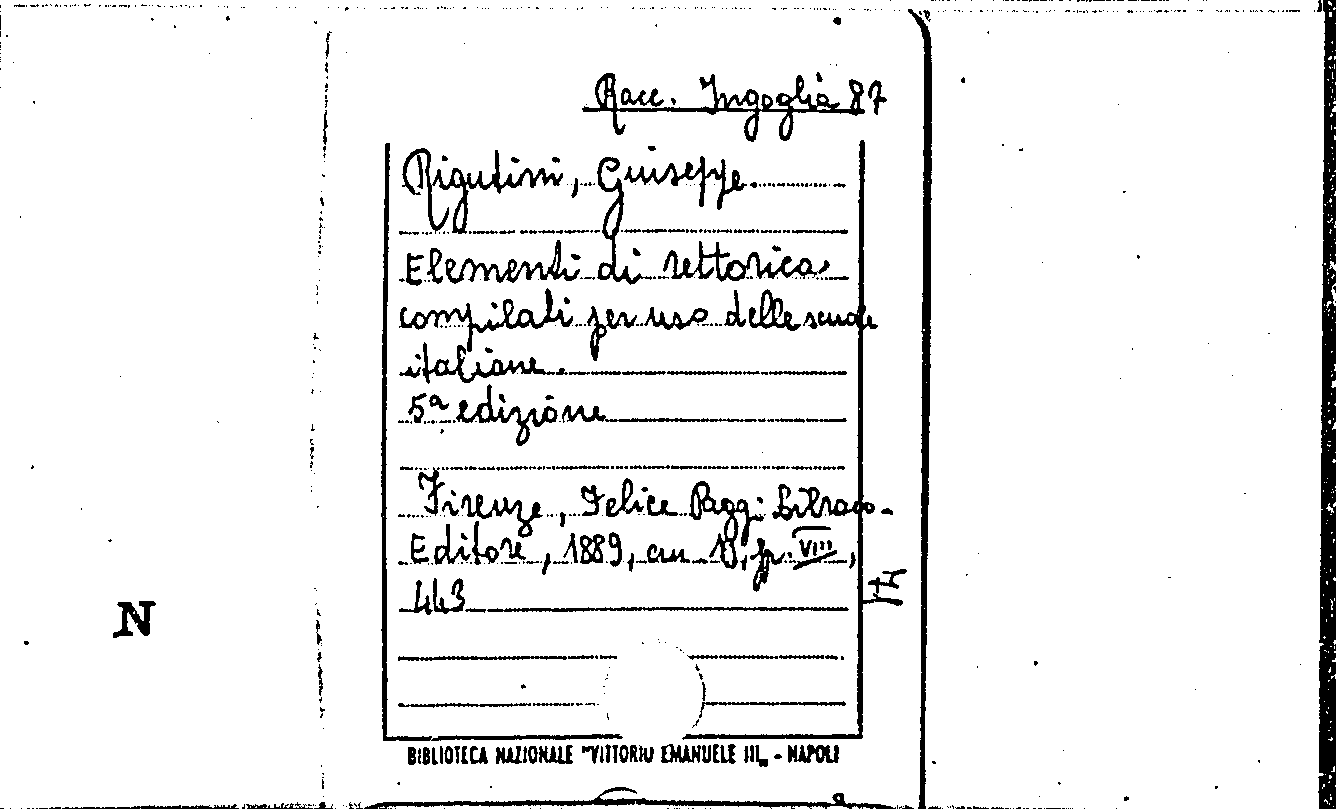 Racc. Ingoglia 87
Rigutini, Giuseppe.
Elementi di rettorica
compilati per uso delle scuole
italiane.
5ª edizione
Firenze, Felice Paggi Libraio-
Editore, 1889, cm 18, pp. VIII,
443
N
BIBLIOTECA NAZIONALE "VITTORIO EMANUELE III„ - NAPOLI